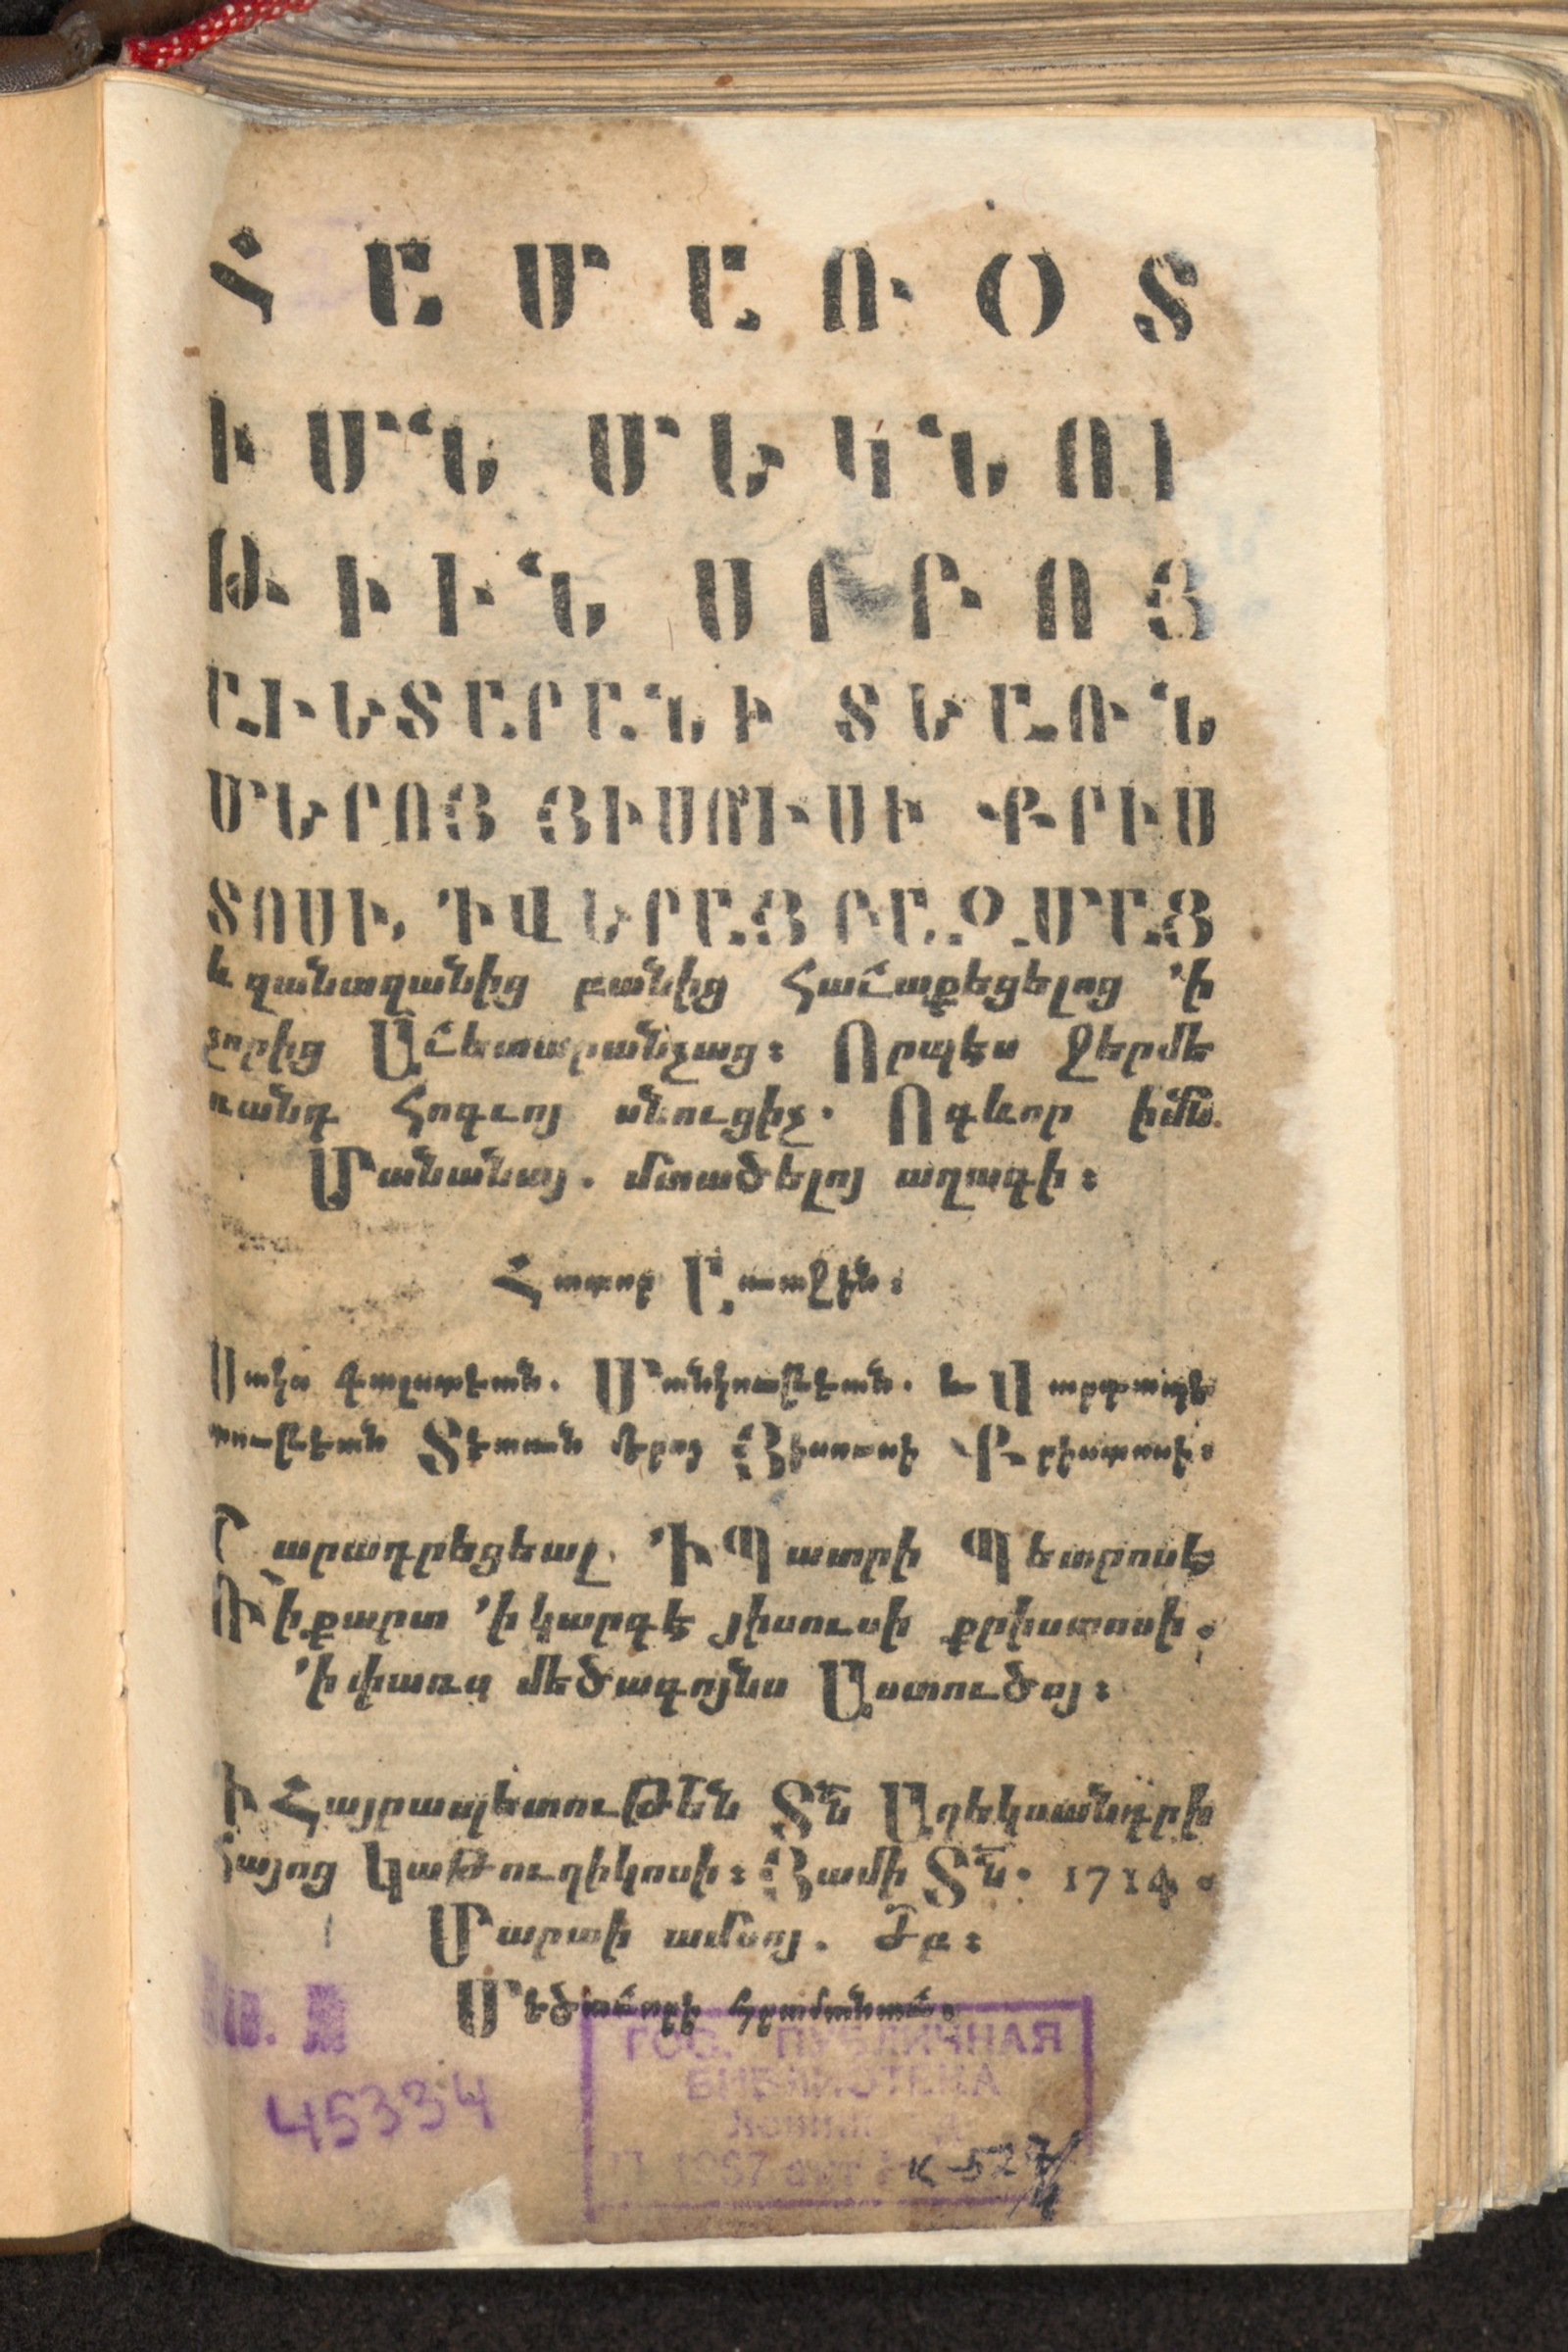 ՀԱՄԱՌՕՏ
ԻՄՆ ՄԵԿՆՈՒ
ԹԻՒՆ ՍՐԲՈՅ
ԱՒԵՏԱՐԱՆԻ ՏԵԱՌՆ
ՄԵՐՈՅ ՅԻՍՈՒՍԻ ՔՐԻՍ
ՏՈՍԻ, ԴԻՎԵՐԱՅ ԲԱԶՄԱՑ
և զանազանից բանից Հաւաքեցելոց ՚ի
չորից Աւետարանչաց։ Որպես Ջերմե
ռանդ Հոգւոյ սնուցիչ. Ոգևոր իմն
Մանանայ. մտածելոյ աղագի։
Հատոր Առաջին։
Սակս Գալստեան. Մանկութեան. և Վարդապե
տութեան Տեառն մերոյ Յիսուսի Քրիստոսի։
Շարադրեցեալ ՚Ի Պատրի Պետրոսէ
Ռիքարտ ՚ի կարգէ յիսուսի քրիստոսի.
՚ի փառս մեծագոյնս Աստուծոյ։
Ի Հայրապետութեն Տն Աղեկսանդրի
Հայոց Կաթուղիկոսի։ Յամի Տն. 1714.
Մարտի ամսոյ. Ժբ։
Մեծաւորի Հրամանաւ։
45334
ГОС. ПУБЛИЧНАЯ
БИБЛИОТЕКА
К-527/4